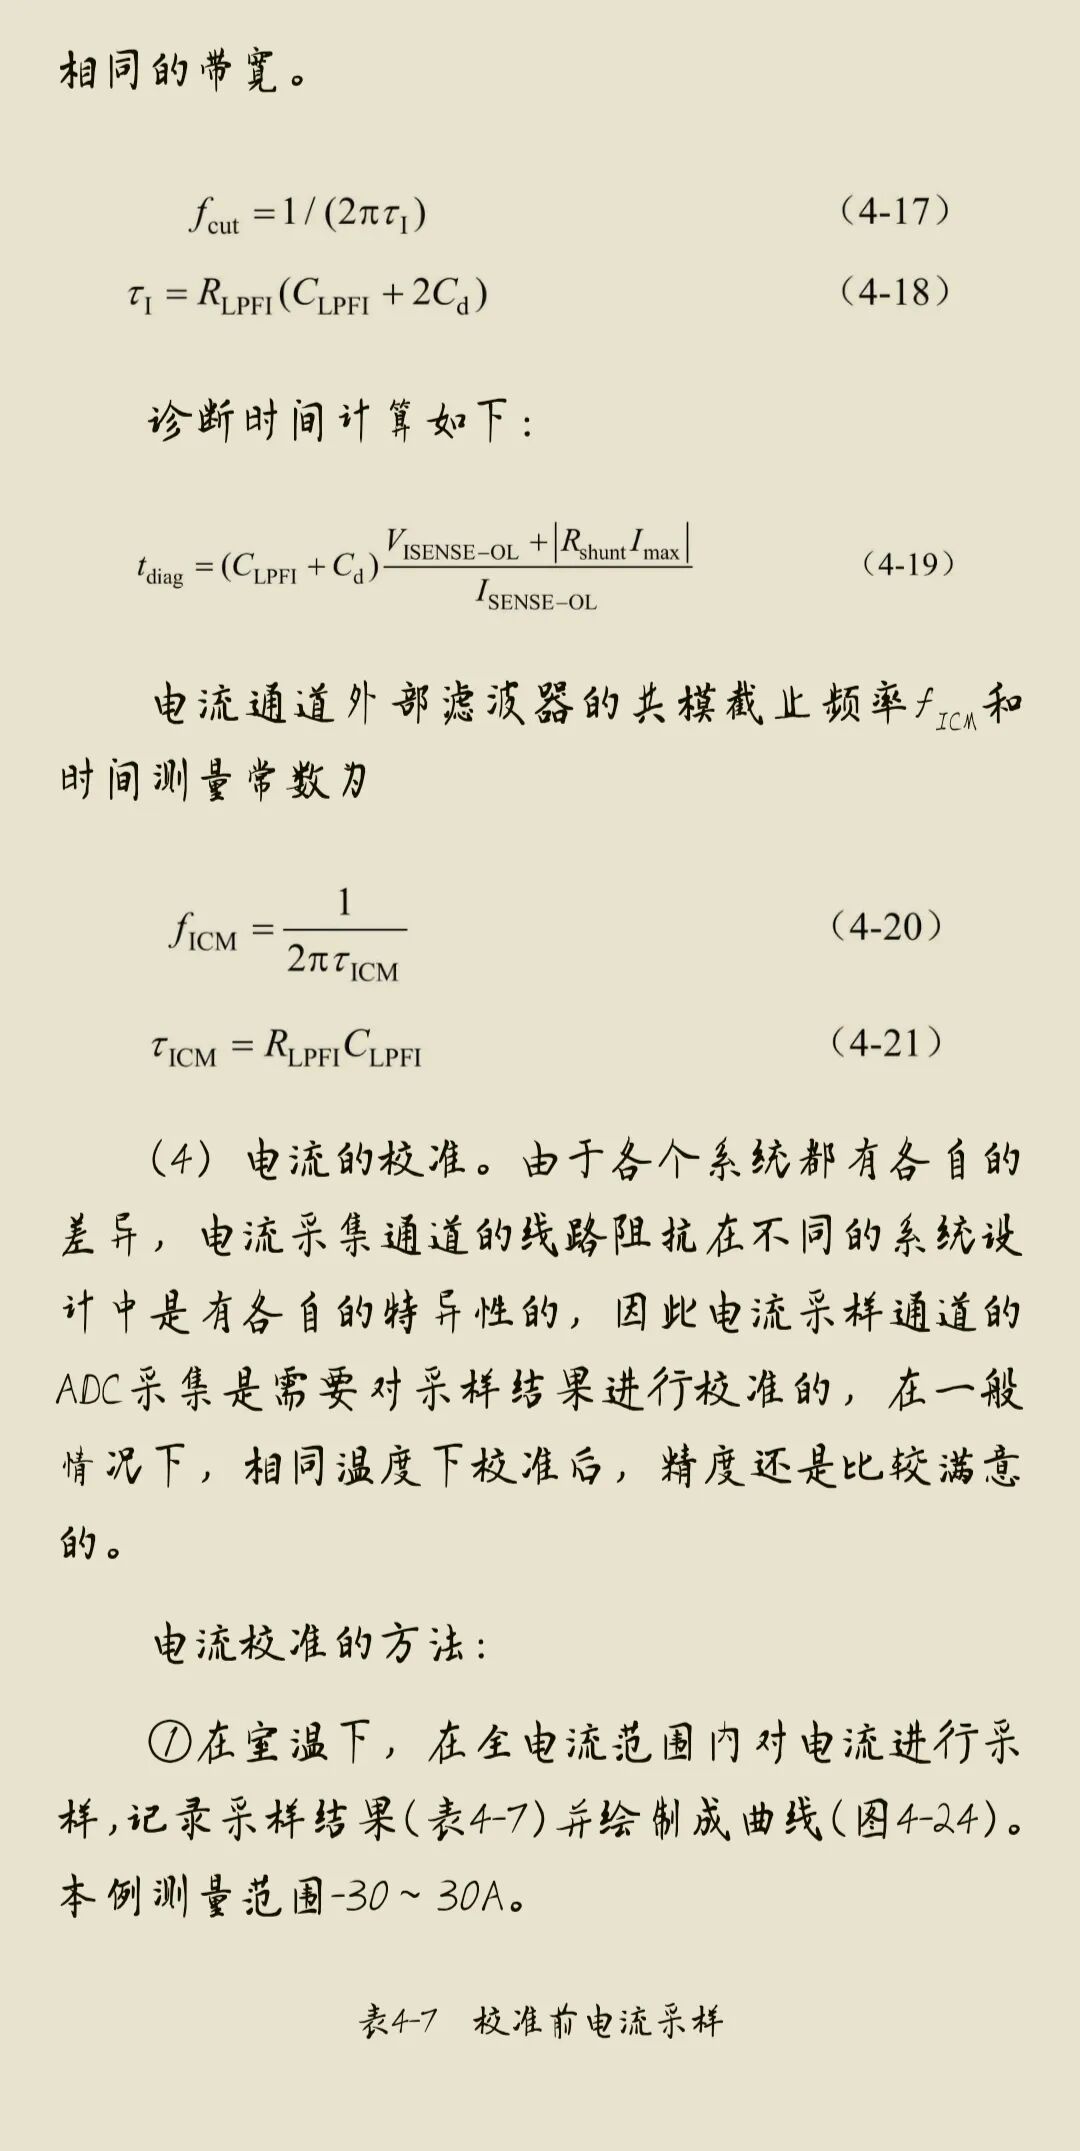 相同的带宽。
f_cut = 1 / (2πτ_I) （4-17）
τ_I = R_LPFI (C_LPFI + 2C_d) （4-18）
诊断时间计算如下：
t_diag = (C_LPFI + C_d) (V_ISENSE−OL + |R_shunt I_max|) / I_SENSE−OL （4-19）
电流通道外部滤波器的共模截止频率f_ICM和
时间测量常数为
f_ICM = 1 / (2πτ_ICM) （4-20）
τ_ICM = R_LPFI C_LPFI （4-21）
（4）电流的校准。由于各个系统都有各自的
差异，电流采集通道的线路阻抗在不同的系统设
计中是有各自的特异性的，因此电流采样通道的
ADC采集是需要对采样结果进行校准的，在一般
情况下，相同温度下校准后，精度还是比较满意
的。
电流校准的方法：
①在室温下，在全电流范围内对电流进行采
样,记录采样结果(表4-7)并绘制成曲线(图4-24)。
本例测量范围-30～30A。
表4-7 校准前电流采样